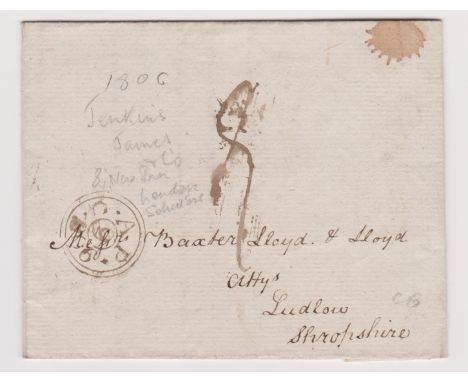 1806
Jenkins
James
& Co
8, New Inn
London
Solicitors
8
Messrs Baxter Lloyd & Lloyd
Attys
Ludlow
Shropshire